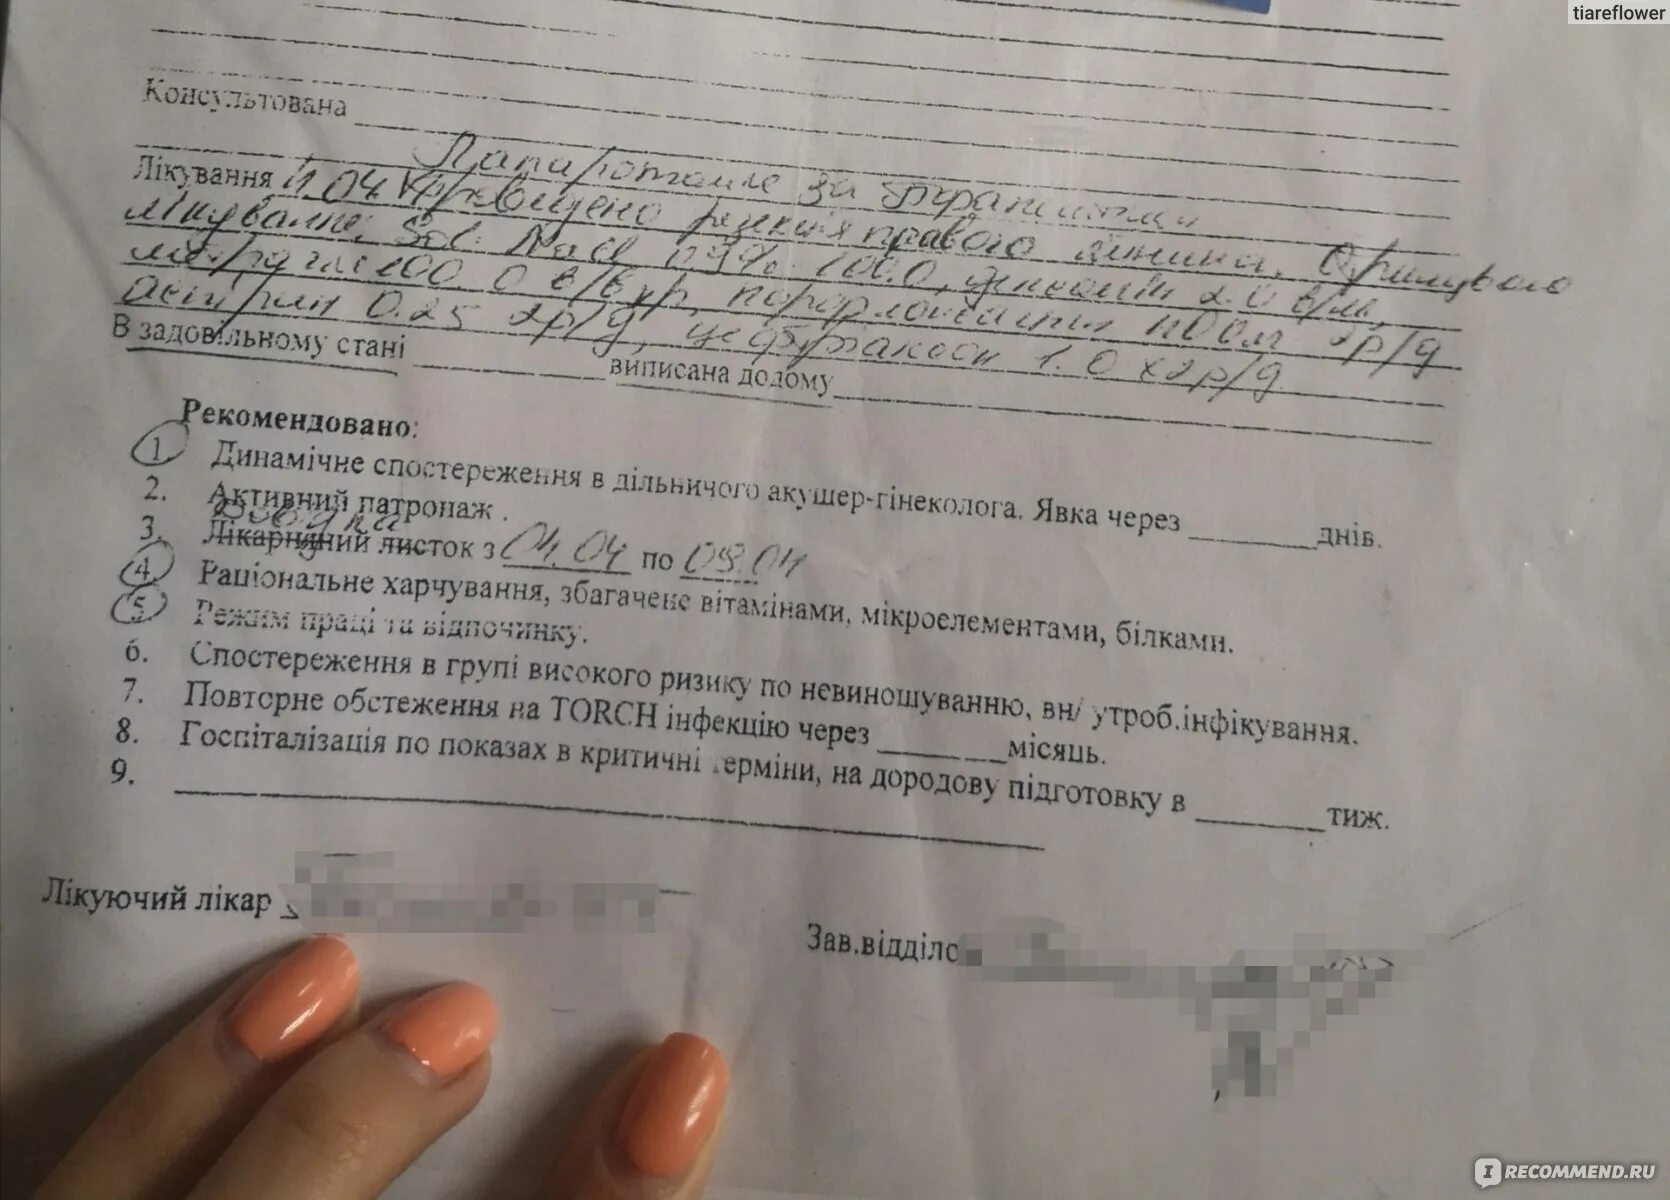 tiareflower
Консультована
Лапаротомле за
Лікування 11.04 резекція правого Отримувала
лікування: Sol. NaCl 0.9% 100.0, 2.0 в/м,
100.0 в/в кр, 2р/д
0.25 2р/д, 1.0 х2р/д
В задовільному стані виписана додому
Рекомендовано:
1. Динамічне спостереження в дільничого акушер-гінеколога. Явка через ______днів.
2. Активний патронаж .
Довідка
3. Лікарняний листок з 04.04 по 09.04
4. Раціональне харчування, збагачене вітамінами, мікроелементами, білками.
5. Режим праці та відпочинку.
6. Спостереження в групі високого ризику по невиношуванню, вн/ утроб.інфікування.
7. Повторне обстеження на TORCH інфекцію через ______місяць.
8. Госпіталізація по показах в критичні терміни, на дородову підготовку в ______тиж.
9.
Лікуючий лікар
Зав.відділ
IRECOMMEND.RU